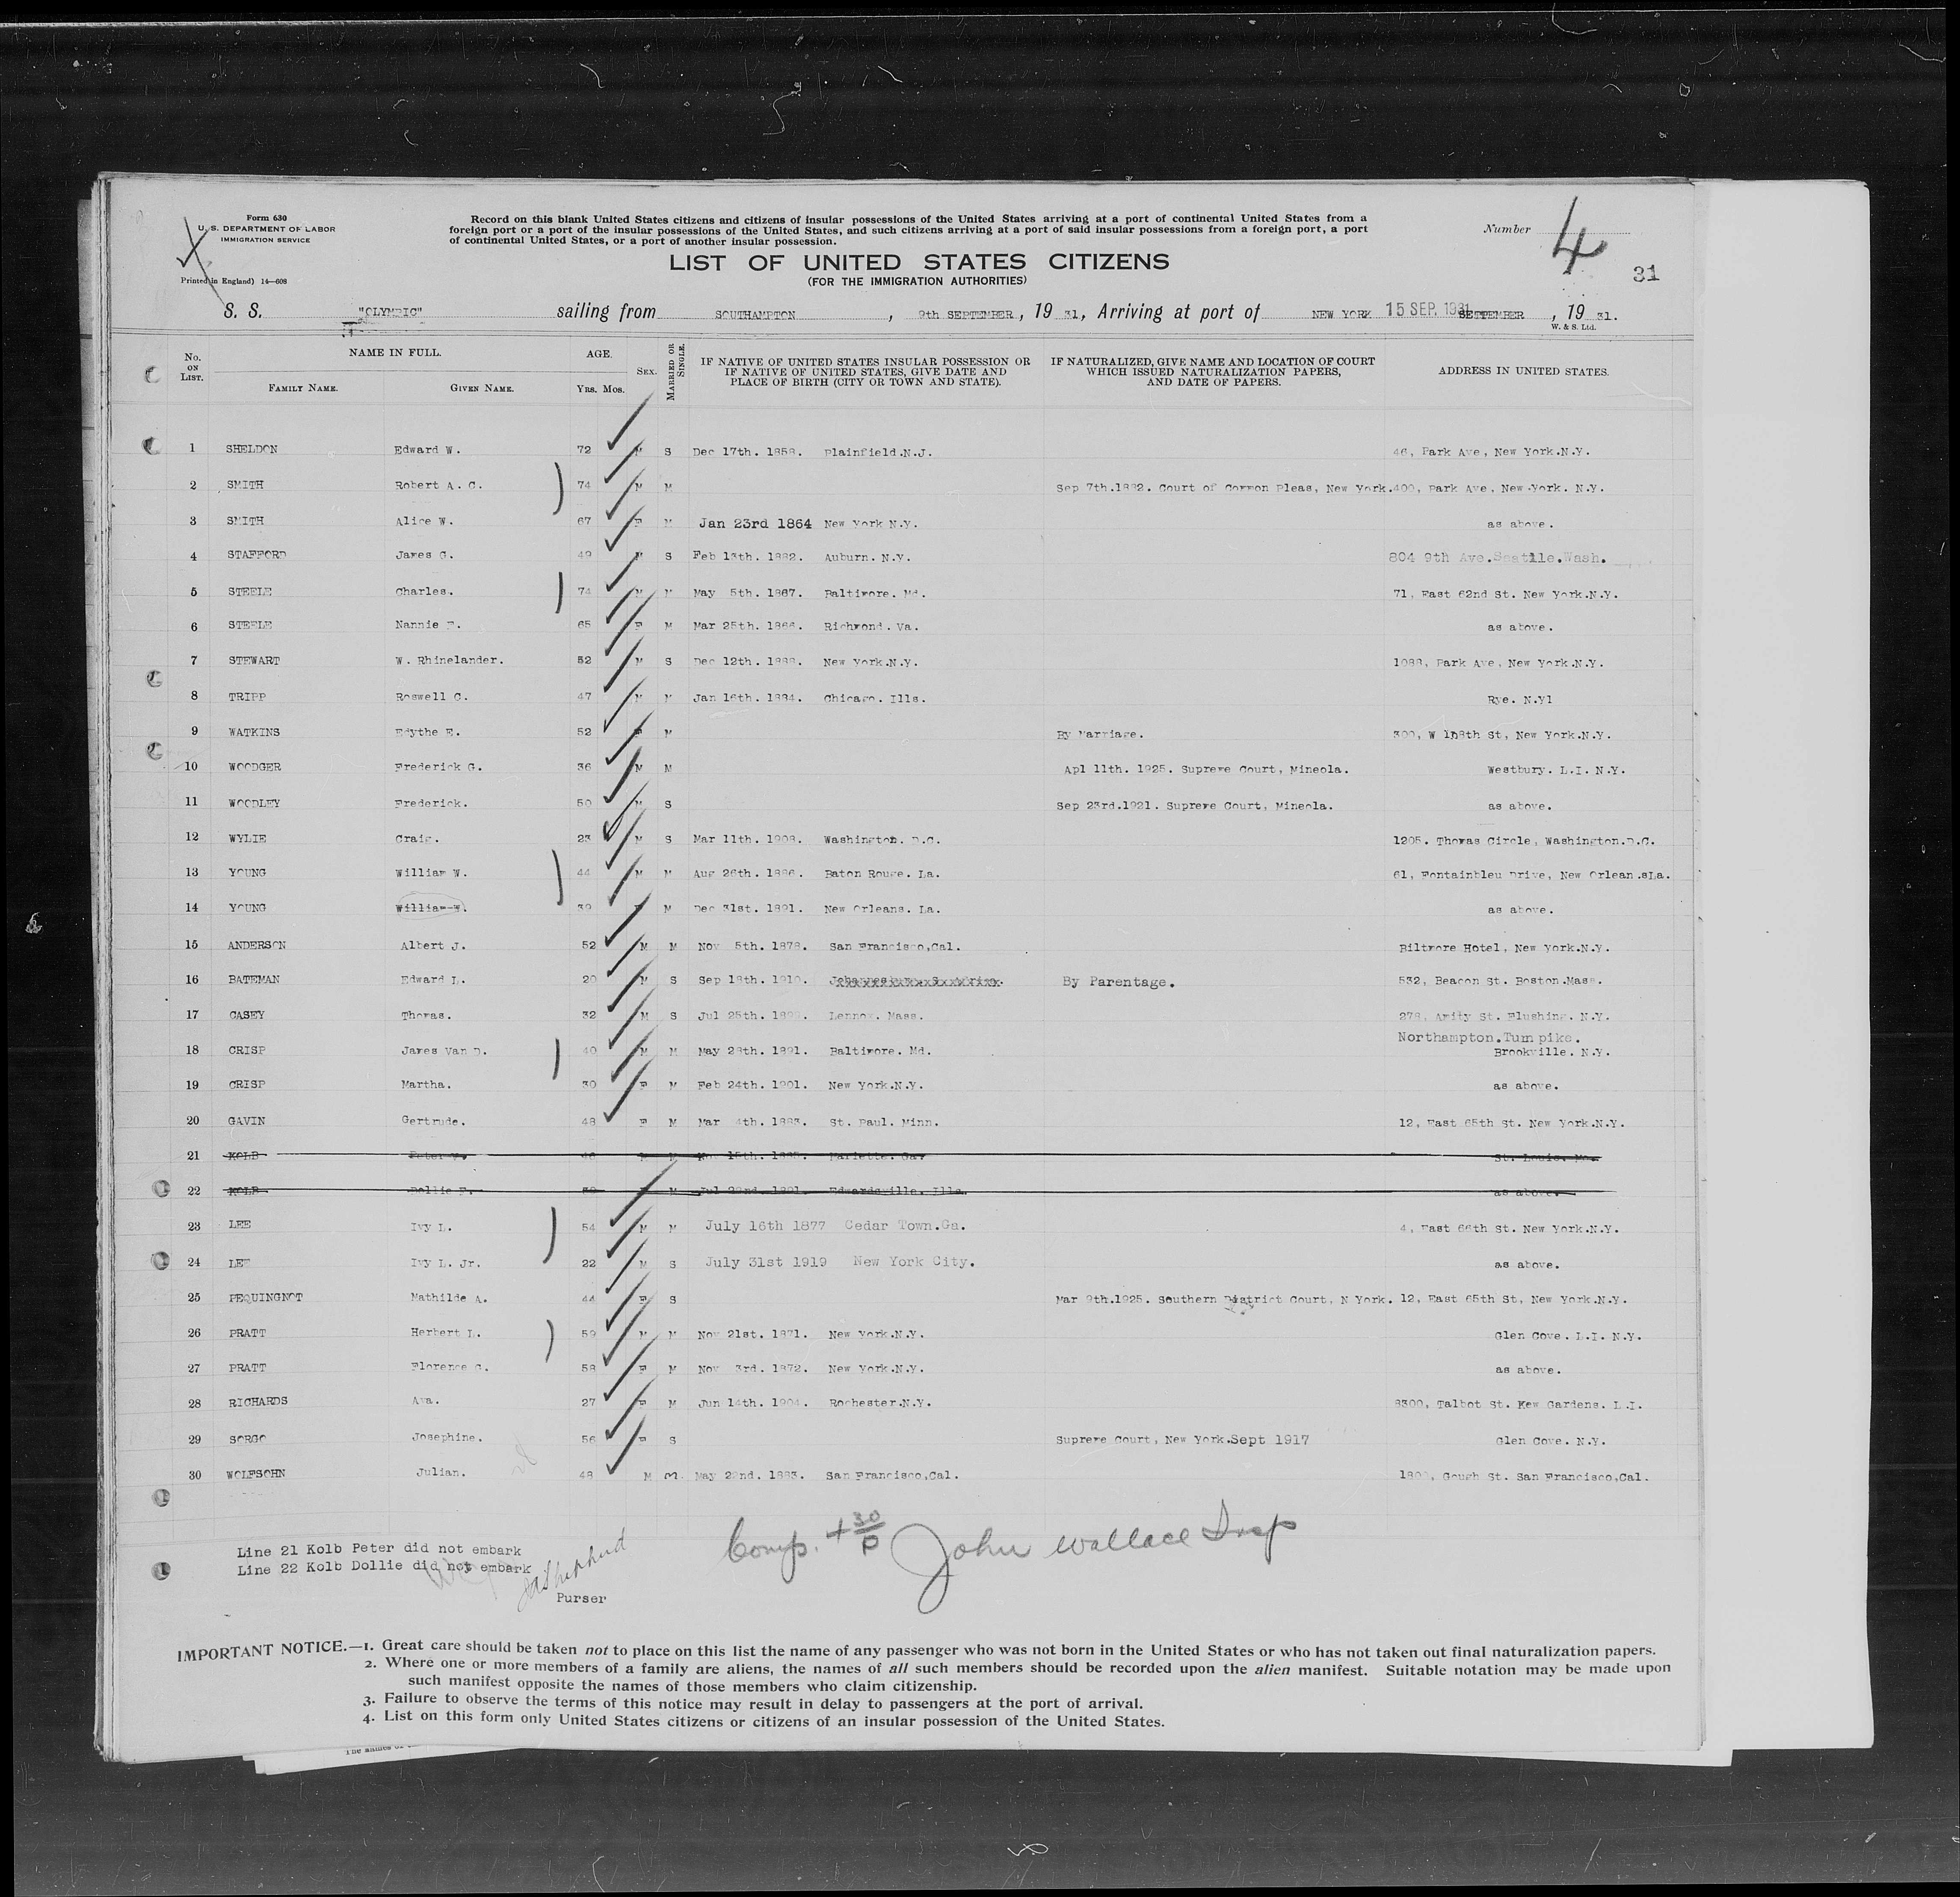 Form 630
U. S. DEPARTMENT OF LABOR
IMMIGRATION SERVICE
Printed in England) 14—608
Record on this blank United States citizens and citizens of insular possessions of the United States arriving at a port of continental United States from a
foreign port or a port of the insular possessions of the United States, and such citizens arriving at a port of said insular possessions from a foreign port, a port
of continental United States, or a port of another insular possession.
Number 4
31
LIST OF UNITED STATES CITIZENS
(FOR THE IMMIGRATION AUTHORITIES)
S. S. "OLYMPIC" sailing from SOUTHAMPTON , 9th SEPTEMBER , 19 31, Arriving at port of NEW YORK 15 SEP. 1931 SEPTEMBER , 19 31.
W. & S. Ltd.
No. ON LIST. NAME IN FULL. AGE. SEX. MARRIED OR SINGLE. IF NATIVE OF UNITED STATES INSULAR POSSESSION OR IF NATIVE OF UNITED STATES, GIVE DATE AND PLACE OF BIRTH (CITY OR TOWN AND STATE). IF NATURALIZED, GIVE NAME AND LOCATION OF COURT WHICH ISSUED NATURALIZATION PAPERS, AND DATE OF PAPERS. ADDRESS IN UNITED STATES.
FAMILY NAME. GIVEN NAME. YRS. MOS.
1 SHELDON Edward W. 72 M S Dec 17th. 1858. Plainfield.N.J. 46, Park Ave, New York.N.Y.
2 SMITH Robert A. C. 74 M M Sep 7th.1882. Court of Common Pleas, New York. 400, Park Ave, New York. N.Y.
3 SMITH Alice W. 67 F M Jan 23rd 1864 New York N.Y. as above.
4 STAFFORD James G. 49 M S Feb 13th. 1882. Auburn. N.Y. 804 9th Ave.Seattle.Wash.
5 STEELE Charles. 74 M M May 5th. 1867. Baltimore. Md. 71, East 62nd St. New York.N.Y.
6 STEELE Nannie F. 65 F M Mar 25th. 1866. Richmond. Va. as above.
7 STEWART W. Rhinelander. 52 M S Dec 12th. 1888. New York.N.Y. 1088, Park Ave, New York.N.Y.
8 TRIPP Roswell C. 47 M M Jan 16th. 1884. Chicago. Ills. Rye. N.Y1
9 WATKINS Edythe E. 52 F M By Marriage. 300, W 108th St, New York.N.Y.
10 WOODGER Frederick G. 36 M M Apl 11th. 1925. Supreme Court, Mineola. Westbury. L.I. N.Y.
11 WOODLEY Frederick. 50 M S Sep 23rd.1921. Supreme Court, Mineola. as above.
12 WYLIE Craig. 23 M S Mar 11th. 1908. Washington. D.C. 1205. Thomas Circle, Washington.D.C.
13 YOUNG William W. 44 M M Aug 26th. 1886. Baton Rouge. La. 61, Fontainbleu Drive, New Orlean.sLa.
14 YOUNG William W. 39 F M Dec 31st. 1891. New Orleans. La. as above.
15 ANDERSON Albert J. 52 M M Nov 5th. 1878. San Francisco,Cal. Biltmore Hotel, New York.N.Y.
16 BATEMAN Edward L. 20 M S Sep 18th. 1910. By Parentage. 532, Beacon St. Boston.Mass.
17 CASEY Thomas. 32 M S Jul 25th. 1899. Lennox. Mass. 278, Amity St. Flushing. N.Y.
Northampton.Turnpike.
18 CRISP James Van D. 40 M M May 28th. 1891. Baltimore. Md. Brookville. N.Y.
19 CRISP Martha. 30 F M Feb 24th. 1901. New York.N.Y. as above.
20 GAVIN Gertrude. 48 F M Mar 4th. 1883. St. Paul. Minn. 12, East 65th St. New York.N.Y.
21 KOLB Peter M 15th. Marietta. Ga. St. Louis. Mo.
22 KOLB Dollie F. M Jul 22nd. 1891. Edwardsville. Ills. as above.
23 LEE Ivy L. 54 M M July 16th 1877 Cedar Town.Ga. 4, East 66th St. New York.N.Y.
24 LEE Ivy L. Jr. 22 M S July 31st 1919 New York City. as above.
25 PEQUINGNOT Mathilde A. 44 F S Mar 9th.1925. Southern District Court, N York. 12, East 65th St, New York.N.Y.
26 PRATT Herbert L. 59 M M Nov 21st. 1871. New York.N.Y. Glen Cove. L.I. N.Y.
27 PRATT Florence G. 58 F M Nov 3rd. 1872. New York.N.Y. as above.
28 RICHARDS Ava. 27 F M Jun 14th. 1904. Rochester.N.Y. 8300, Talbot St. Kew Gardens. L.I.
29 SORGO Josephine. 56 F S Supreme Court, New York.Sept 1917 Glen Cove. N.Y.
30 WOLFSOHN Julian. 48 M M. May 22nd. 1883. San Francisco,Cal. Gough St. San Francisco,Cal.
Comp. + 30/P John Wallace Insp
Line 21 Kolb Peter did not embark
Line 22 Kolb Dollie did not embark
Purser
IMPORTANT NOTICE.—1. Great care should be taken not to place on this list the name of any passenger who was not born in the United States or who has not taken out final naturalization papers.
2. Where one or more members of a family are aliens, the names of all such members should be recorded upon the alien manifest. Suitable notation may be made upon
such manifest opposite the names of those members who claim citizenship.
3. Failure to observe the terms of this notice may result in delay to passengers at the port of arrival.
4. List on this form only United States citizens or citizens of an insular possession of the United States.